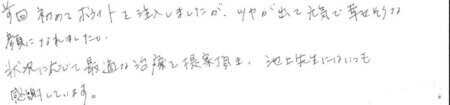 前回 初めてボライトを注入しましたが、ツヤが出て元気で幸せそうな
顔になれました。
状況に応じて最適な治療を提案頂き、池上先生にはいつも
感謝しています。